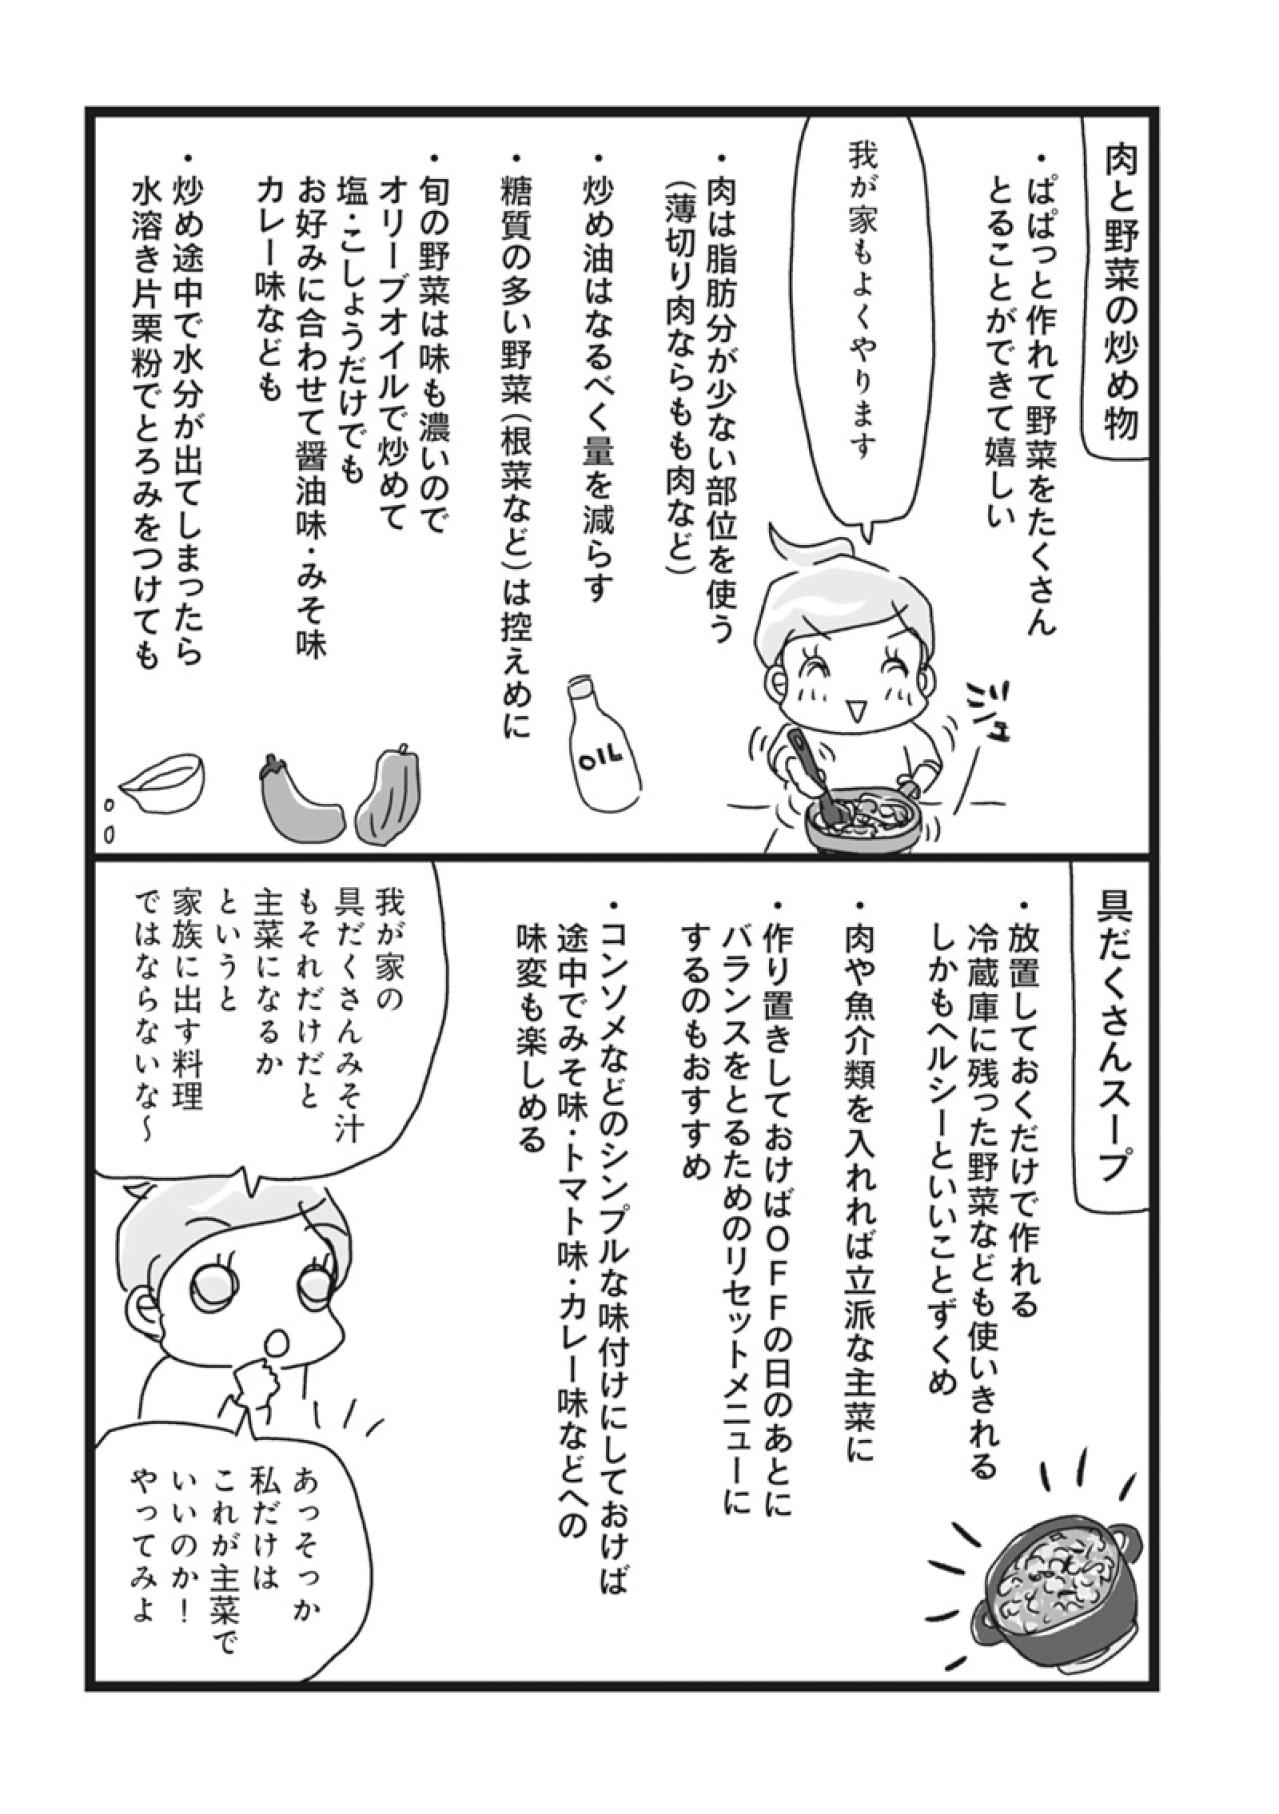 肉と野菜の炒め物
・ぱぱっと作れて野菜をたくさん
とることができて嬉しい
我が家もよくやります
ジュー
・肉は脂肪分が少ない部位を使う
（薄切り肉ならもも肉など）
・炒め油はなるべく量を減らす
OIL
・糖質の多い野菜（根菜など）は控えめに
・旬の野菜は味も濃いので
オリーブオイルで炒めて
塩・こしょうだけでも
お好みに合わせて醤油味・みそ味
カレー味なども
・炒め途中で水分が出てしまったら
水溶き片栗粉でとろみをつけても
具だくさんスープ
・放置しておくだけで作れる
冷蔵庫に残った野菜なども使いきれる
しかもヘルシーといいことずくめ
・肉や魚介類を入れれば立派な主菜に
・作り置きしておけばOFFの日のあとに
バランスをとるためのリセットメニューに
するのもおすすめ
・コンソメなどのシンプルな味付けにしておけば
途中でみそ味・トマト味・カレー味などへの
味変も楽しめる
我が家の
具だくさんみそ汁
もそれだけだと
主菜になるか
というと
家族に出す料理
ではならないな〜
あっそっか
私だけは
これが主菜で
いいのか！
やってみよ